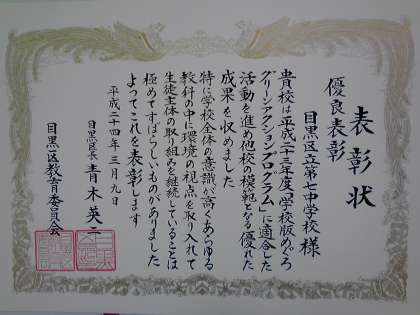 表彰状
優良表彰
目黒区立第七中学校様
貴校は平成二十三年度「学校版めぐろ
グリーンアクションプログラム」に適合した
活動を進め他校の模範となる優れた
成果を収めました
特に学校全体の意識が高くあらゆる
教科の中に環境の視点を取り入れて
生徒主体の取り組みを継続していることは
極めてすばらしいものがありました
よってこれを表彰します
平成二十四年三月九日
目黒区長 青木英二
目黒区教育委員会